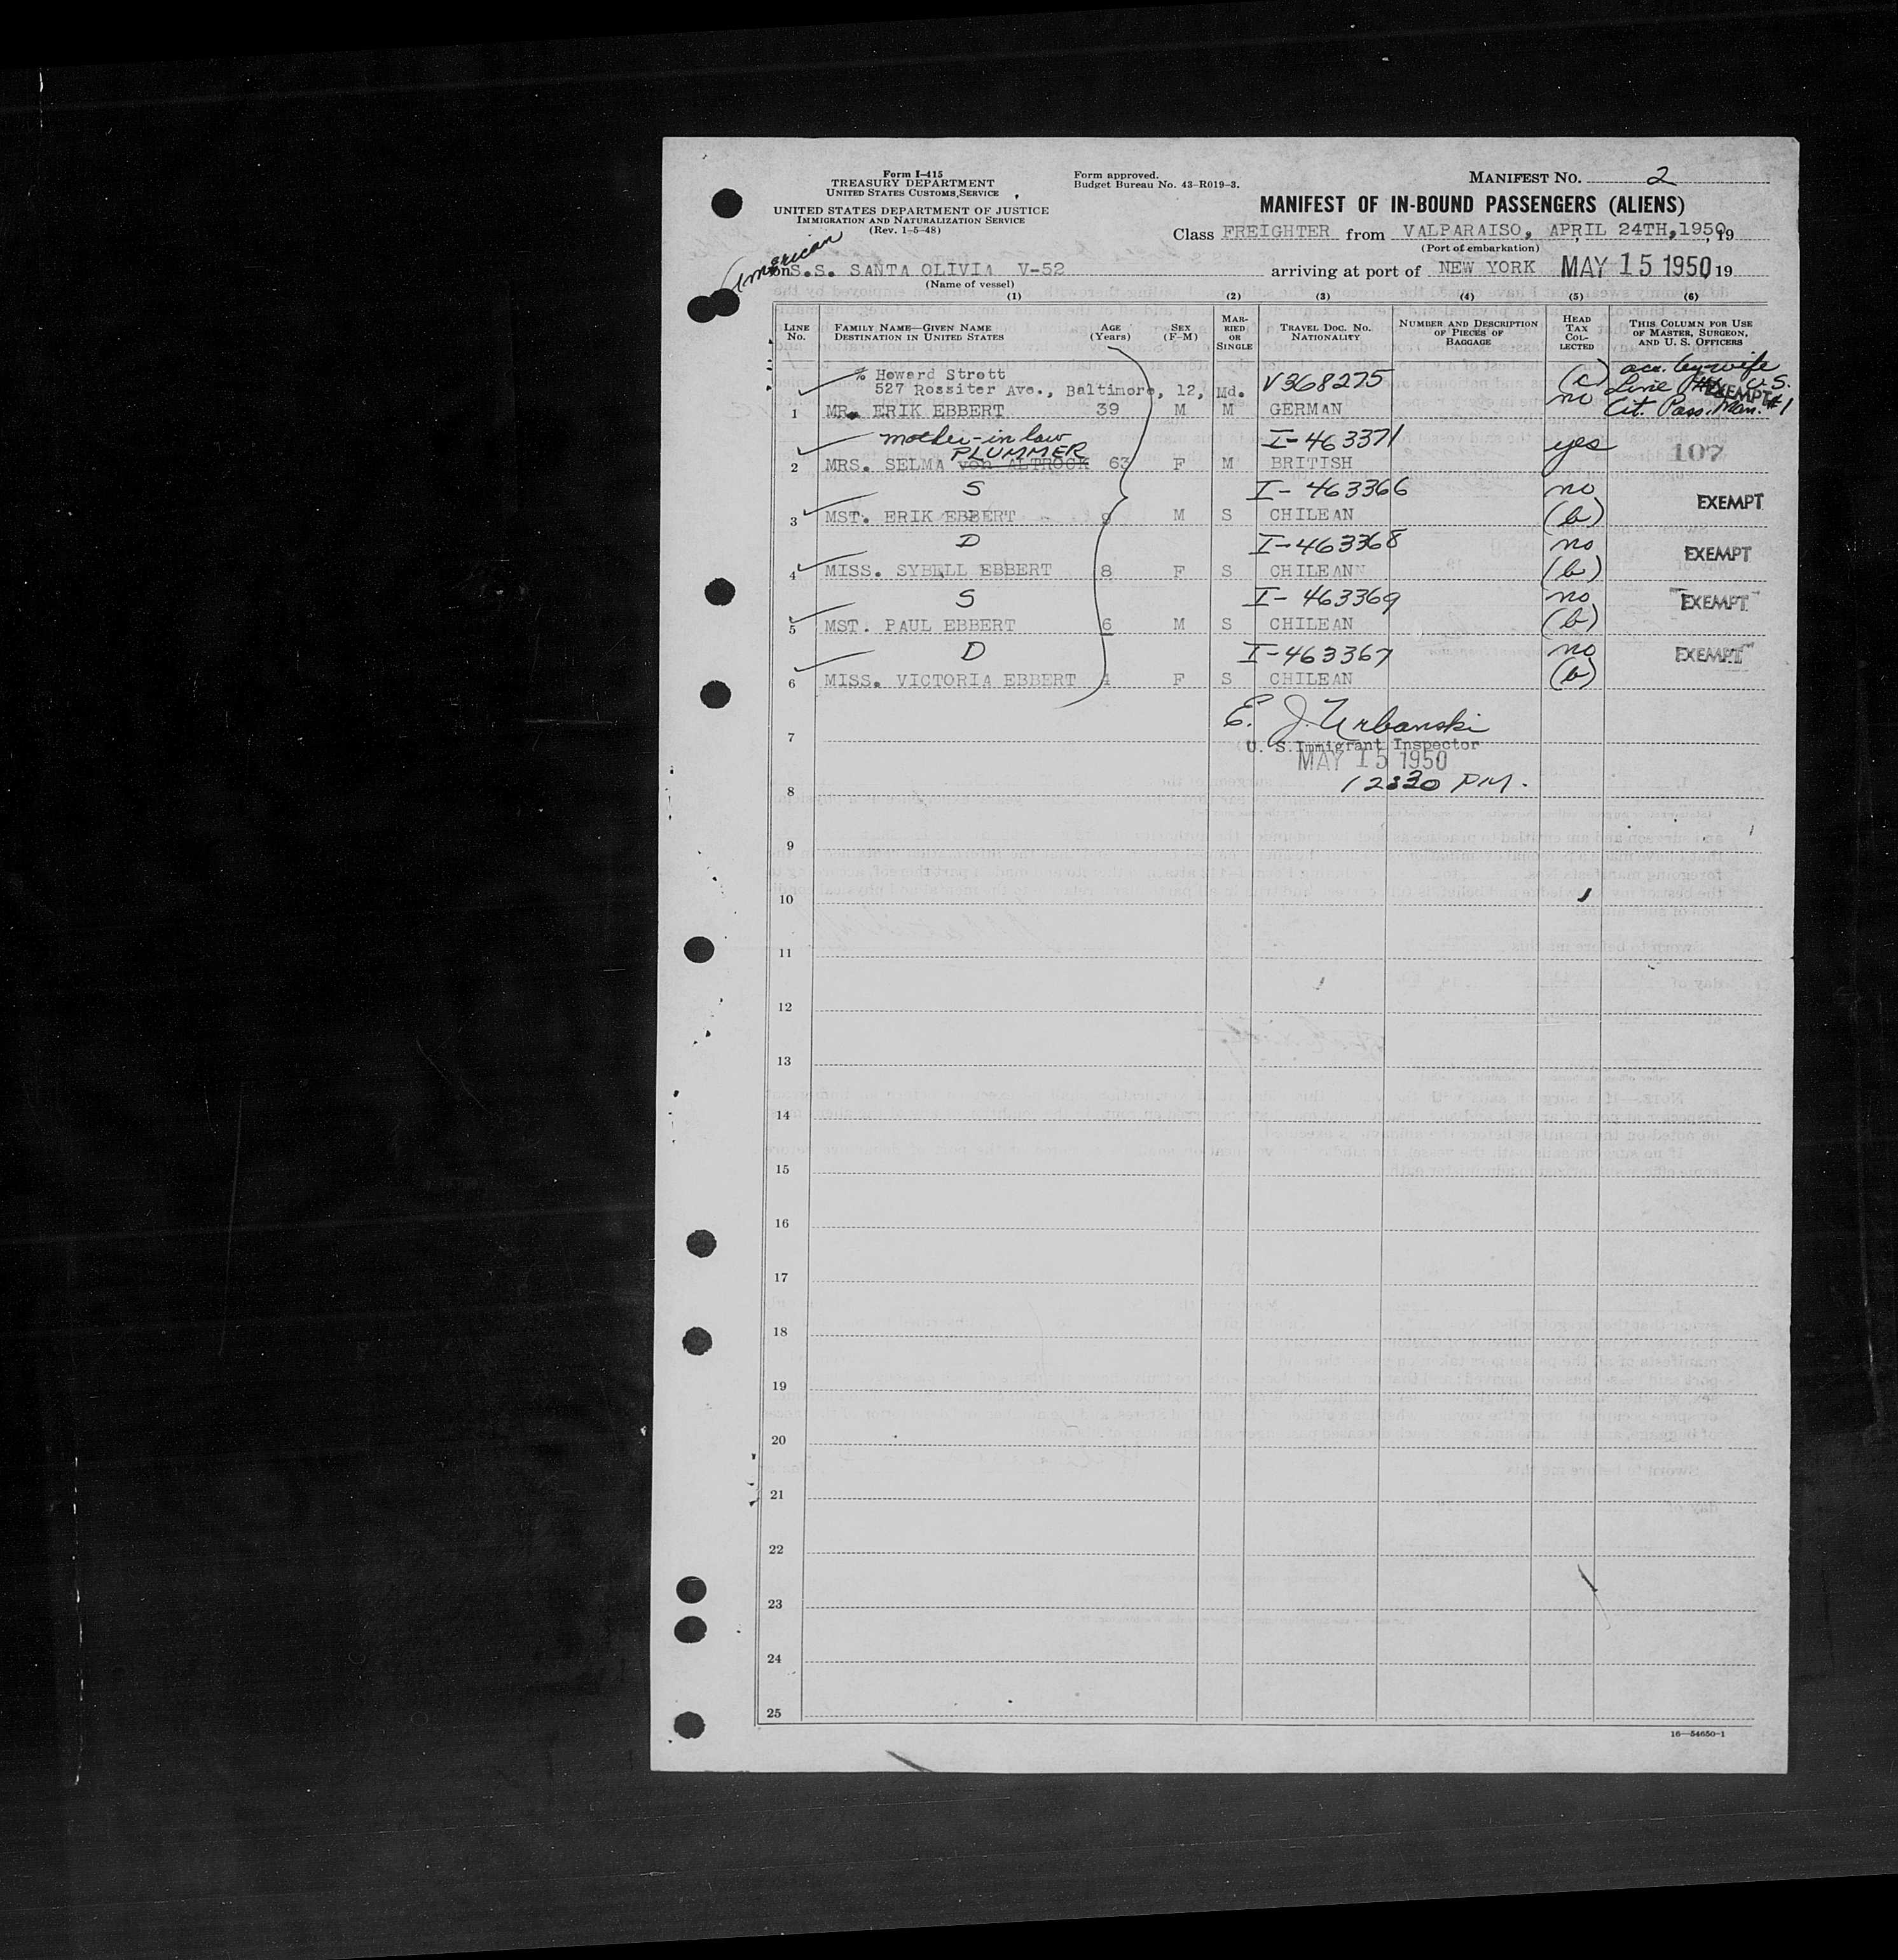 Form I-415
TREASURY DEPARTMENT
UNITED STATES CUSTOMS SERVICE
UNITED STATES DEPARTMENT OF JUSTICE
IMMIGRATION AND NATURALIZATION SERVICE
(Rev. 1-5-48)
Form approved.
Budget Bureau No. 43-R019-3.
MANIFEST NO. 2
MANIFEST OF IN-BOUND PASSENGERS (ALIENS)
Class FREIGHTER from VALPARAISO, APRIL 24TH, 1950, 19
(Port of embarkation)
American
on S.S. SANTA OLIVIA V-52 arriving at port of NEW YORK MAY 15 1950 19
(Name of vessel)
(1) (2) (3) (4) (5) (6)
LINE NO.
FAMILY NAME—GIVEN NAME
DESTINATION IN UNITED STATES
AGE (Years)
SEX (F-M)
MARRIED OR SINGLE
TRAVEL DOC. NO. NATIONALITY
NUMBER AND DESCRIPTION OF PIECES OF BAGGAGE
HEAD TAX COLLECTED
THIS COLUMN FOR USE OF MASTER, SURGEON, AND U. S. OFFICERS
% Howard Strott acc. by wife
527 Rossiter Ave., Baltimore, 12, Md. V368275 (c) Line #1 U.S.
1 MR. ERIK EBBERT 39 M M GERMAN no Cit. Pass. Man. #1 EXEMPT
mother-in law I-463371 yes
PLUMMER
2 MRS. SELMA von ALTROCK 63 F M BRITISH 107
S I-463366 no EXEMPT
3 MST. ERIK EBBERT 9 M S CHILEAN (b)
D I-463368 no EXEMPT
4 MISS. SYBELL EBBERT 8 F S CHILEAN (b)
S I-463369 no EXEMPT
5 MST. PAUL EBBERT 6 M S CHILEAN (b)
D I-463367 no EXEMPT
6 MISS. VICTORIA EBBERT 4 F S CHILEAN (b)
E. J. Urbanski
7
U. S. Immigrant Inspector
MAY 15 1950
1230 PM.
8
9
10
11
12
13
14
15
16
17
18
19
20
21
22
23
24
25
16—54650-1